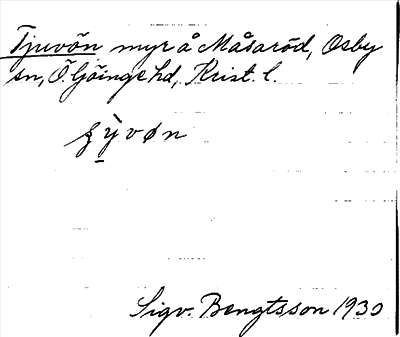 Tjuvön myr å Måsaröd, Osby
sn, Ö. Göinge hd, Krist. l.
ʒỳvøn
Sigv. Bengtsson 1930